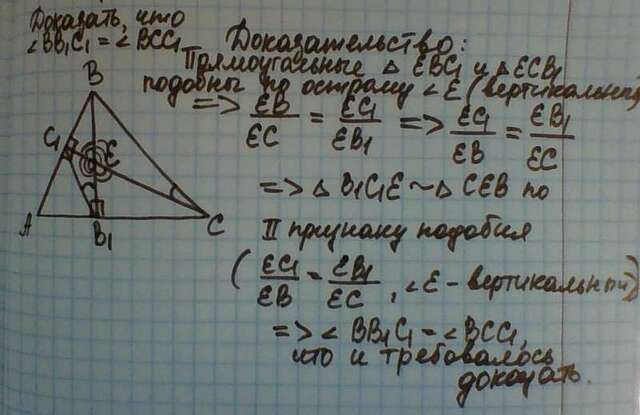 Доказать, что
∠BB₁C₁ = ∠BCC₁
Доказательство:
Прямоугольные △ EBC₁ и △ ECB₁
подобны по острому ∠E (вертикальные)
=> EB/EC = EC₁/EB₁ => EC₁/EB = EB₁/EC
=> △ B₁C₁E ~ △ CEB по
II признаку подобия
(EC₁/EB = EB₁/EC, ∠E - вертикальный)
=> ∠BB₁C₁ = ∠BCC₁,
что и требовалось
доказать.
B
C₁
E
A
B₁
C